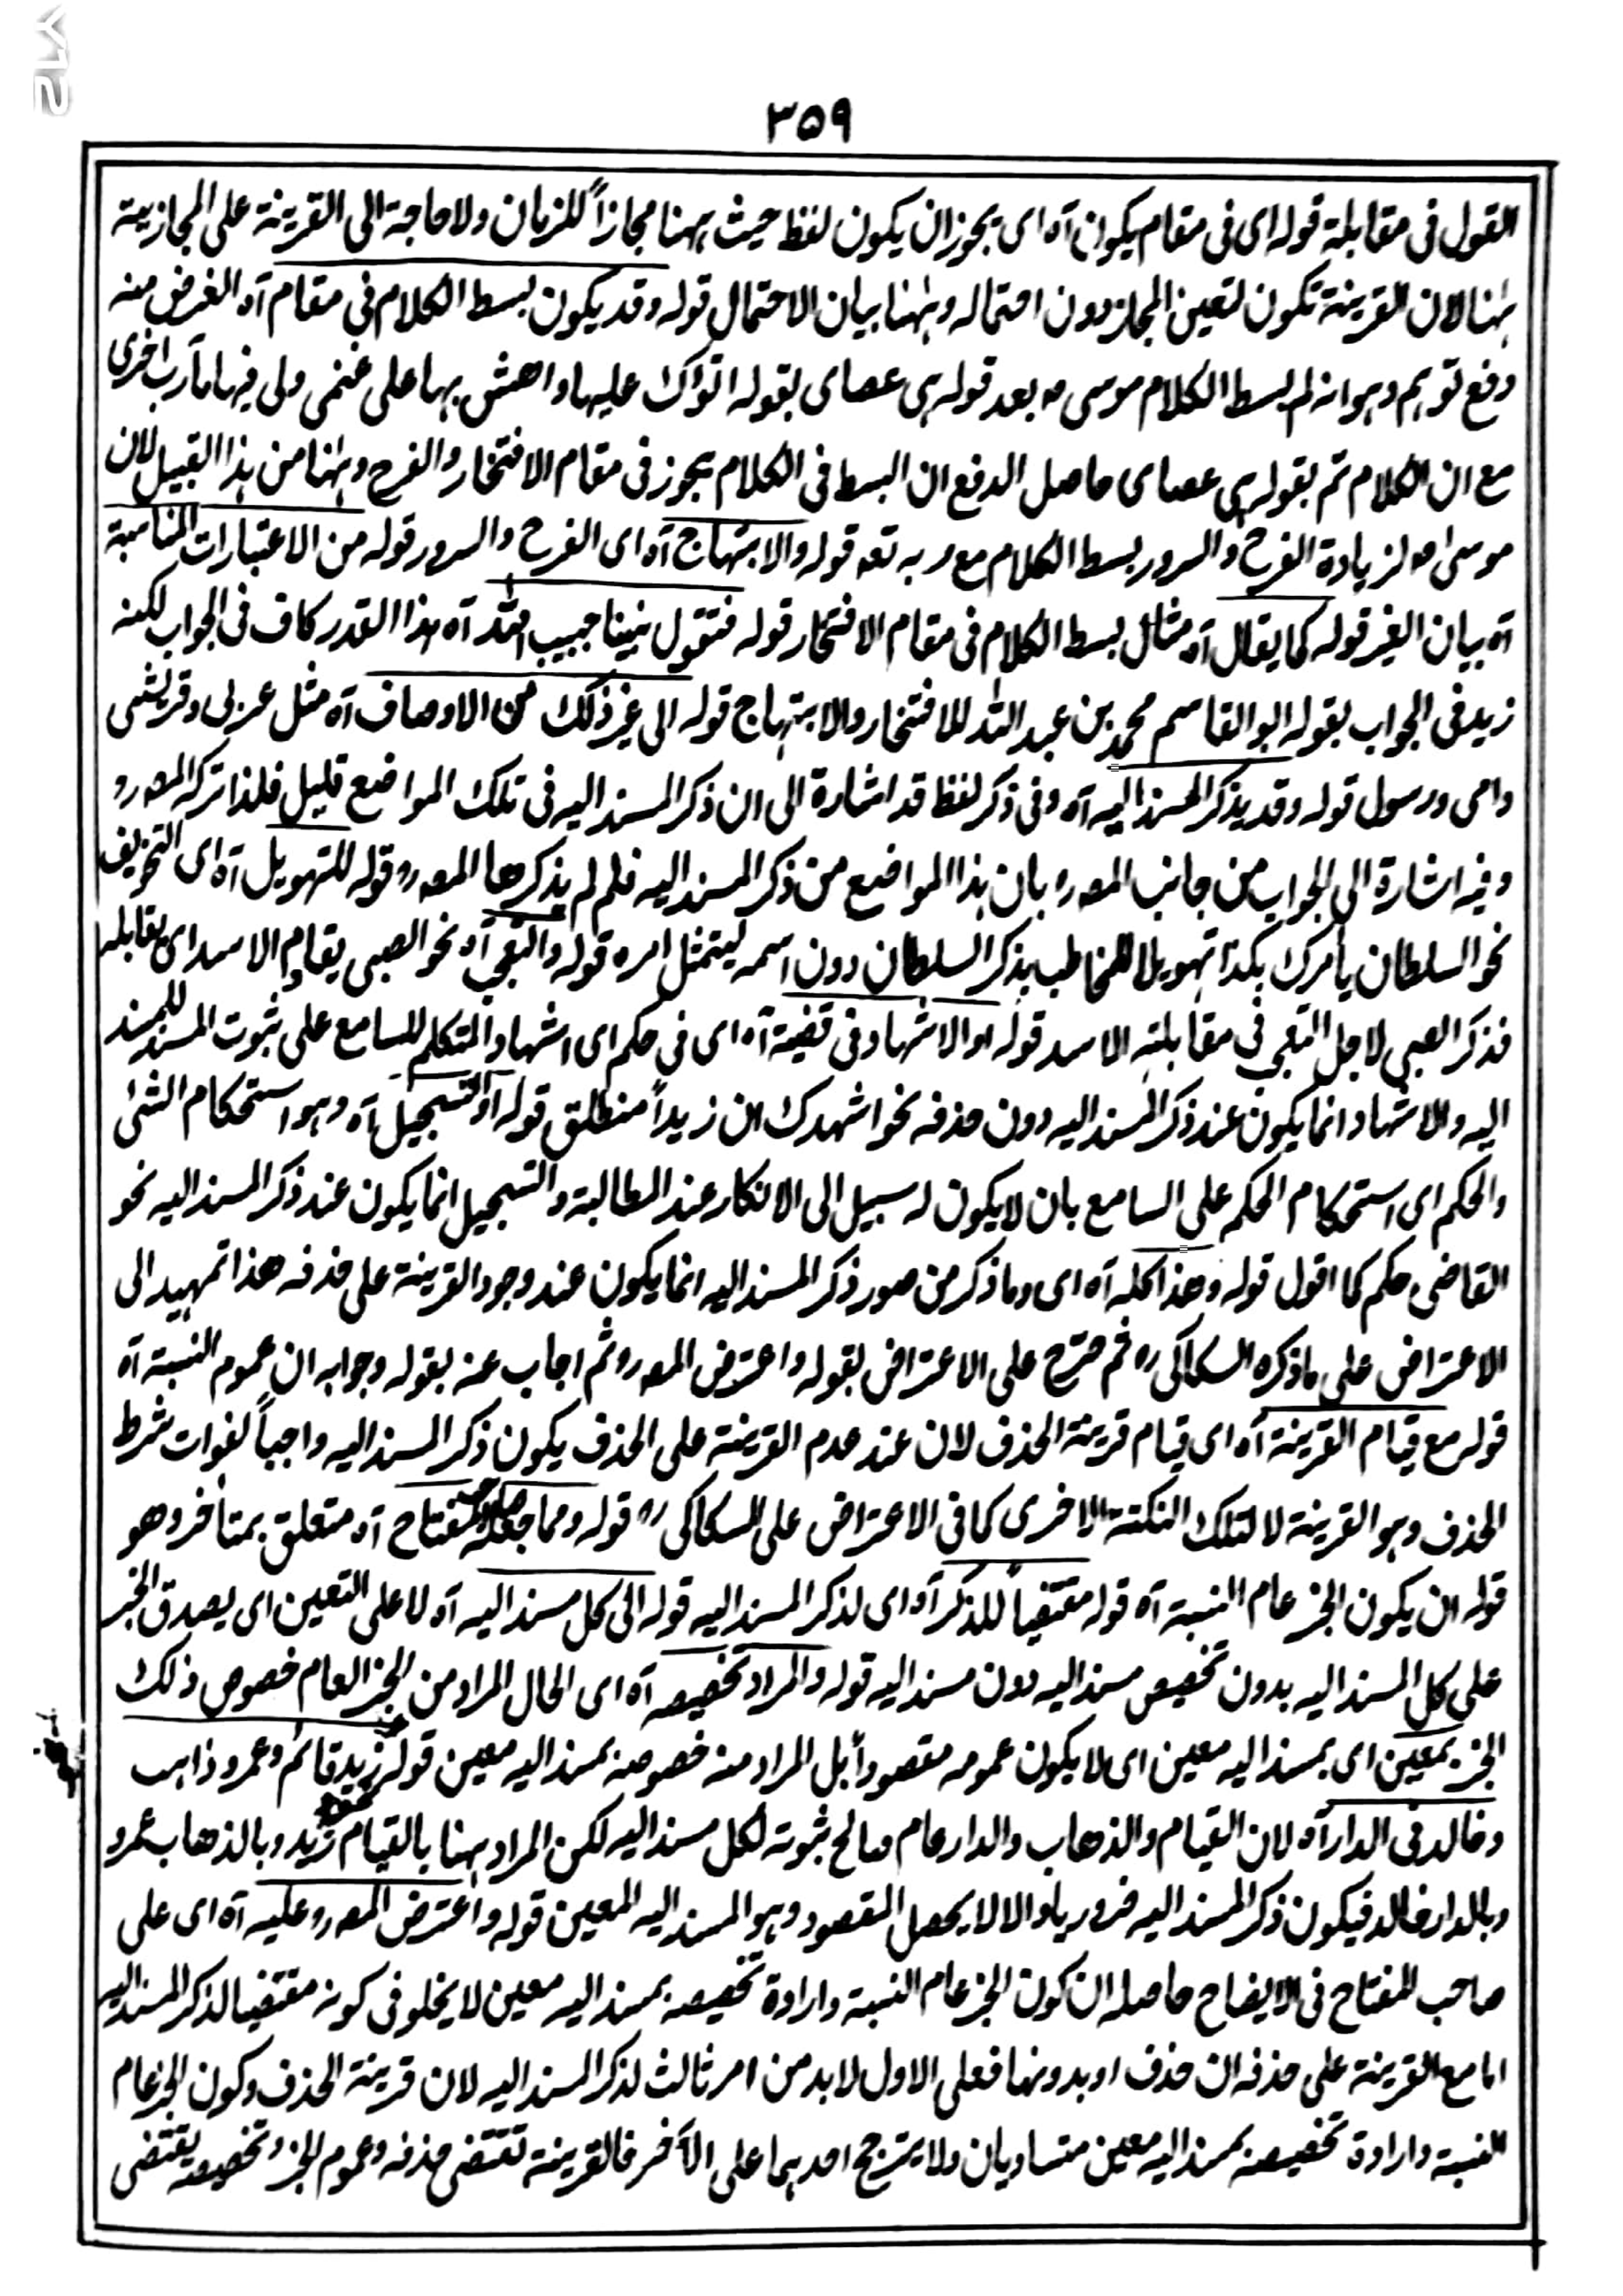 ٣٥٩
القول فی مقابلة قوله ای فی مقام یکون آه ای یجوز ان یکون لفظ حیث ههنا مجازاً للزمان ولا حاجة الی القرینة علی المجازیة
ههنا لان القرینة تکون لتعین المجاز دون احتماله وههنا بیان الاحتمال قوله وقد یکون بسط الکلام فی مقام آه الغرض منه
دفع توهم وهو انه لم بسط الکلام موسی ۴ بعد قوله هی عصای بقوله اتوکأ علیها واهش بها علی غنمی ولی فیها مآرب اخری
مع ان الکلام تم بقوله هی عصای حاصل الدفع ان البسط فی الکلام یجوز فی مقام الافتخار والفرح وههنا من هذا القبیل لان
موسی ۴ لزیادة الفرح والسرور بسط الکلام مع ربه تعه قوله والابتهاج آه ای الفرح والسرور قوله من الاعتبارات المناسبة
آه بیان الغیر قوله کما یقال آه مثال بسط الکلام فی مقام الافتخار قوله فتقول نبینا حبیب الله آه هذا القدر کاف فی الجواب لکنه
زید فی الجواب بقوله ابو القاسم محمد بن عبد الله للافتخار والابتهاج قوله الی غیر ذلک من الاوصاف آه مثل عربی وقریشی
وامی ورسول قوله وقد یذکر المسند الیه آه وفی ذکر لفظ قد اشارة الی ان ذکر المسند الیه فی تلک المواضع قلیل فلذا ترکه المصرو
وفیه اشارة الی الجواب من جانب المصرو بان هذا المواضع من ذکر المسند الیه فلم لم یذکرها المصرو قوله للتهویل آه ای التخویف
نحو السلطان یأمرک بکذا تهویلا للمخاطب بذکر السلطان دون اسمه لیتمثل امره قوله والتعجب آه نحو الصبی یقاوم الاسد ای یقابله
فذکر الصبی لاجل التعجب فی مقابلته الاسد قوله او الاشهاد فی قضیة آه ای فی حکم ای اشهاد المتکلم للسامع علی ثبوت المسند للمسند
الیه والاشهاد انما یکون عند ذکر المسند الیه دون حذفه نحو اشهدک ان زیداً منطلق قوله او التسجیل آه وهو استحکام الشئ
والحکم ای استحکام الحکم علی السامع بان لا یکون له سبیل الی الانکار عند المطالبة والتسجیل انما یکون عند ذکر المسند الیه نحو
القاضی حکم کما اقول قوله وهذا کله آه ای وما ذکر من صور ذکر المسند الیه انما یکون عند وجود القرینة علی حذفه هذا تمهید الی
الاعتراض علی ما ذکره السکاکی ره ثم صرح علی الاعتراض بقوله واعترض المصرو ثم اجاب عنه بقوله وجوابه ان عموم النسبة آه
قوله مع قیام القرینة آه ای قیام قرینة الحذف لان عند عدم القرینة علی الحذف یکون ذکر المسند الیه واجباً لفوات شرط
الحذف وهو القرینة لا لتلک النکتة الاخری کما فی الاعتراض علی السکاکی ره قوله ومما جعله صاحب المفتاح آه متعلق بمتأخر وهو
قوله ان یکون الخبر عام النسبة آه قوله مقتضیاً للذکر آه ای لذکر المسند الیه قوله الی کل مسند الیه آه لا علی التعین ای یصدق الخبر
علی کل المسند الیه بدون تخصیص مسند الیه دون مسند الیه قوله والمراد تخصیصه آه ای الحال المراد من الخبر العام خصوص ذلک
الخبر بمعین ای بمسند الیه معین ای لا یکون عمومه مقصوداً بل المراد منه خصوصه بمسند الیه معین قوله نحو زید قائم وعمرو ذاهب
وخالد فی الدار آه لان القیام والذهاب والدار عام صالح ثبوته لکل مسند الیه لکن المراد ههنا بالقیام زید وبالذهاب عمرو
وبالدار خالد فیکون ذکر المسند الیه ضروریا والا لا یحصل المقصود وهو المسند الیه المعین قوله واعترض المصرو علیه آه ای علی
صاحب المفتاح فی الایضاح حاصله ان کون الخبر عام النسبة وارادة تخصیصه بمسند الیه معین لا یخلو فی کونه مقتضیا لذکر المسند الیه
اما مع القرینة علی حذفه ان حذف او بدونها فعلی الاول لا بد من امر ثالث لذکر المسند الیه لان قرینة الحذف وکون الخبر عام
النسبة وارادة تخصیصه بمسند الیه معین متساویان ولا یترجح احدهما علی الآخر فالقرینة تقتضی حذفه وعموم الخبر وتخصیصه یقتضی